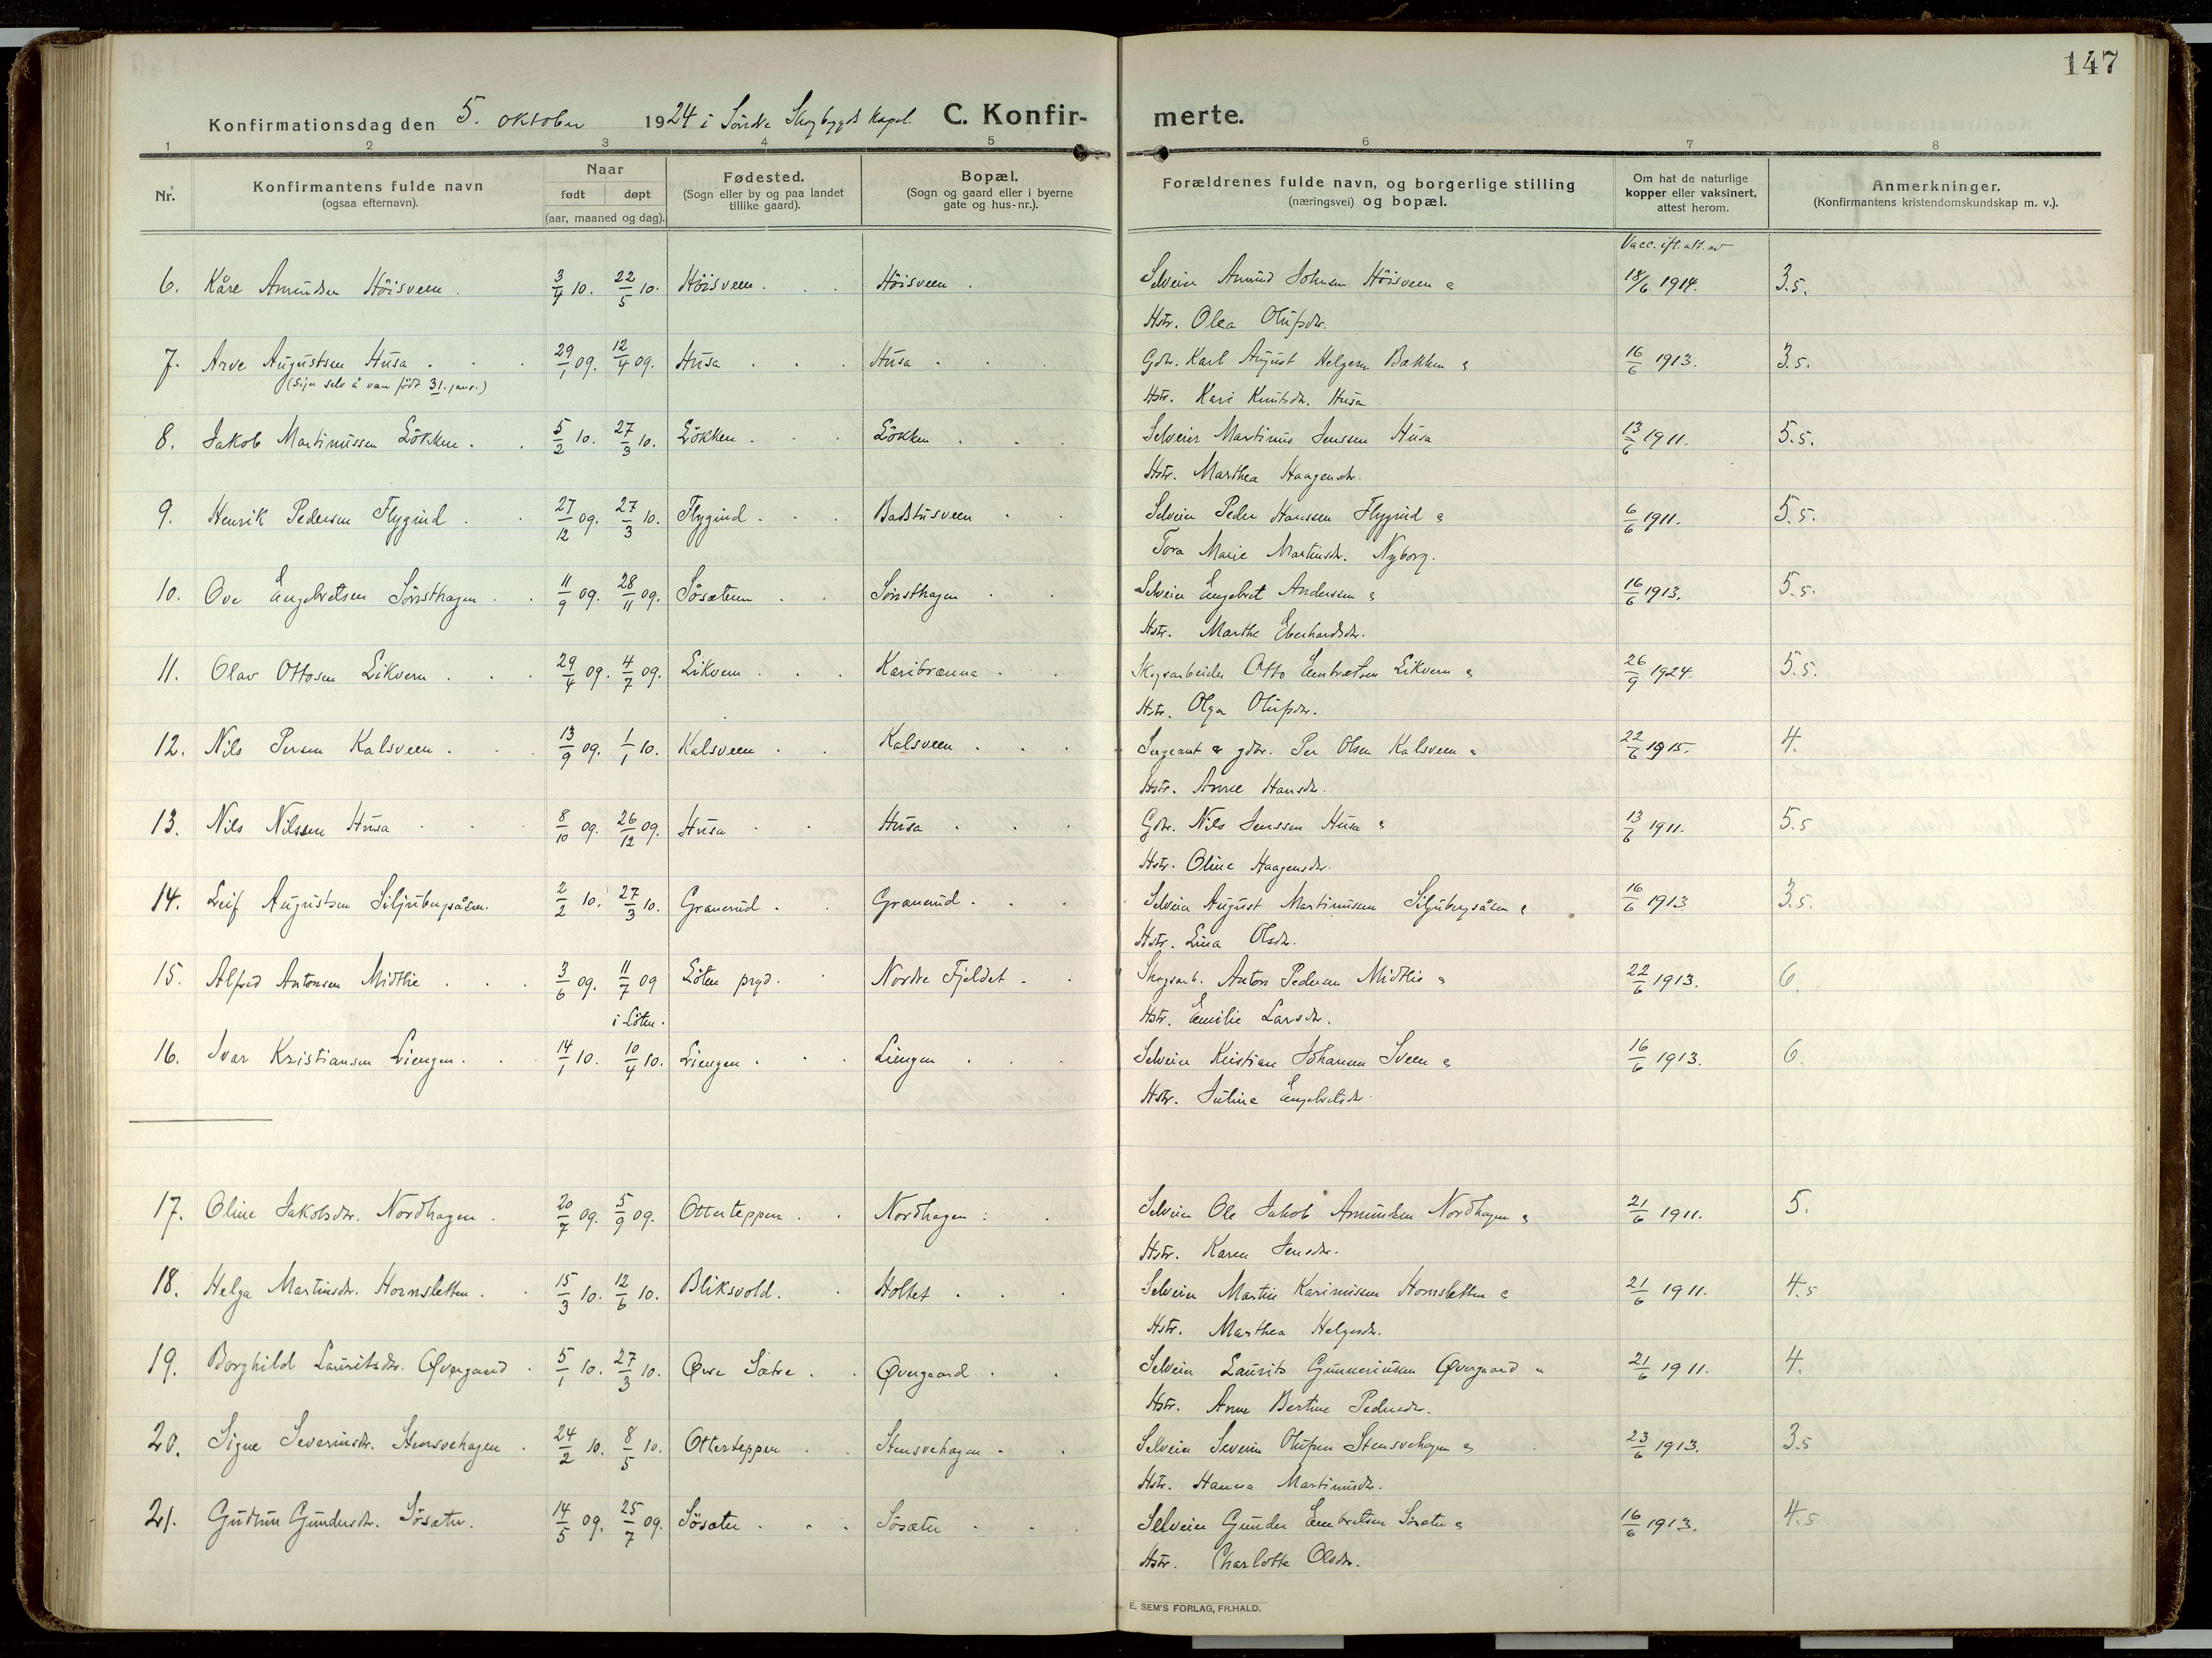 147
Konfirmationsdag den 5. oktober 1924 i Söndre Skogbygds Kapel. C. Konfir- merte.
1 2 3 4 5 6 7 8
Nr. Konfirmantens fulde navn (ogsaa efternavn). Naar født døpt (aar, maaned og dag). Fødested. (Sogn eller by og paa landet tillike gaard). Bopæl. (Sogn og gaard eller i byerne gate og hus-nr.). Forældrenes fulde navn, og borgerlige stilling (næringsvei) og bopæl. Om hat de naturlige kopper eller vaksinert, attest herom. Anmerkninger. (Konfirmantens kristendomskundskap m. v.).
Vacc. ifl. att. av
6. Kåre Amundsen Höisveen. 3/4 10. 22/5 10. Höisveen. Höisveen. Selveier Amund Johnsen Höisveen & 18/6 1914. 3.5.
Hstr. Olea Olufsdtr.
7. Arve Augustsen Husa 29/1 09. 12/4 09. Husa Husa Gdbr. Karl August Helgesen Bækken & 16/6 1913. 3.5.
(Sier selv å være född 31. janr.)
Hstr. Kari Knutsdtr. Husa
8. Jakob Martinussen Lökken. 5/2 10. 27/3 10. Lökken Lökken Selveier Martinus Jenssen Husa 13/6 1911. 5.5.
Hstr. Marthea Haagensdtr.
9. Henrik Pedersen Flygind 27/12 09. 27/3 10. Flygind Badstusveen Selveier Peder Hanssen Flygind & 6/6 1911. 5.5.
Tora Marie Martinsdtr. Nyborg.
10. Ove Engebretsen Sörnsthagen 11/9 09. 28/11 09. Sösæteren Sörnsthagen Selveier Engebret Anderssen & 16/6 1913. 5.5.
Hstr. Marthe Eberhardsdtr.
11. Olav Ottosen Likvern 29/4 09. 4/7 09. Likvern Karibrænna Skogsarbeider Otto Embretsen Likvern & 26/9 1924. 5.5.
Hstr. Olga Olufsdtr.
12. Nils Persen Kalsveen 13/9 09. 1/1 10. Kalsveen Kalsveen Sergeant & gdbr. Per Olsen Kalsveen & 22/6 1915. 4.
Hstr. Anne Hansdtr.
13. Nils Nilssen Husa 8/10 09. 26/12 09. Husa Husa Gdbr. Nils Jenssen Husa & 13/6 1911. 5.5
Hstr. Oline Haagensdtr.
14. Leif Augustsen Siljubergsåsen. 2/2 10. 27/3 10. Granerud Granerud Selveier August Martinussen Siljubergsåsen & 16/6 1913 3.5.
Hstr. Lina Olsdtr.
15. Alfred Antonsen Midtlie 3/6 09. 11/7 09 Löten prgd. Nordre Fjeldet Skogsarb. Anton Pedersen Midtlie & 22/6 1913. 6.
i Löten. Hstr. Emilie Larsdtr.
16. Ivar Kristiansen Liengen. 14/1 10. 10/4 10. Liengen Liengen Selveier Kristian Johansen Sveen & 16/6 1913. 6.
Hstr. Juline Engebretsdtr.
17. Oline Jakobsdtr. Nordhagen. 20/7 09. 5/9 09. Otterteppen Nordhagen Selveier Ole Jakob Amundsen Nordhagen & 21/6 1911. 5.
Hstr. Karen Jensdtr.
18. Helga Martinsdtr. Hornsletten 15/3 10. 12/6 10. Bliksvold. Holtet Selveier Martin Karinussen Hornsletten & 21/6 1911. 4.5
Hstr. Marthea Helgesdtr.
19. Borghild Lauritsdtr. Øvergaard 5/1 10. 27/3 10. Øvre Sætre Øvergaard Selveier Laurits Gunneriussen Øvergaard & 21/6 1911. 4.
Hstr. Anne Bertine Pedersdtr.
20. Signe Severinsdtr. Stensvehagen 24/2 10. 8/5 10. Otterteppen Stensvehagen Selveier Severin Olufsen Stensvehagen & 23/6 1913. 3.5
Hstr. Hanna Martinusdtr.
21. Gudrun Gundersdtr. Sösæter. 14/5 09. 25/7 09. Sösæter Sösæter Selveier Gunder Embretsen Sösæter & 16/6 1913. 4.5
Hstr. Charlotte Olsdtr.
E. SEM'S FORLAG, FR.HALD.